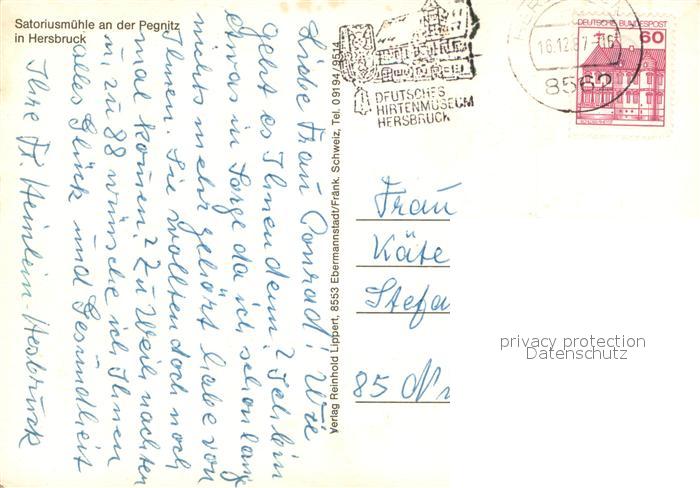 Satoriusmühle an der Pegnitz
in Hersbruck
Liebe Frau Conrad! Wie
geht es Ihnen denn? Ich bin
etwas in Sorge da ich schon lang
nichts mehr gehört habe von
Ihnen. Sie wollten doch noch
mal kommen? Zu Weihnachten
u. zu 88 wünsche ich Ihnen
alles Glück und Gesundheit
Ihre Fr. Heinlein-Hersbruck
Verlag Reinhold Lippert, 8553 Ebermannstadt/Fränk. Schweiz, Tel. 09194/9514
DEUTSCHES
HIRTENMUSEUM
HERSBRUCK
16.12.87
8562
DEUTSCHE BUNDESPOST
60
Frau
Käte
Stefa
85 Nr
privacy protection
Datenschutz